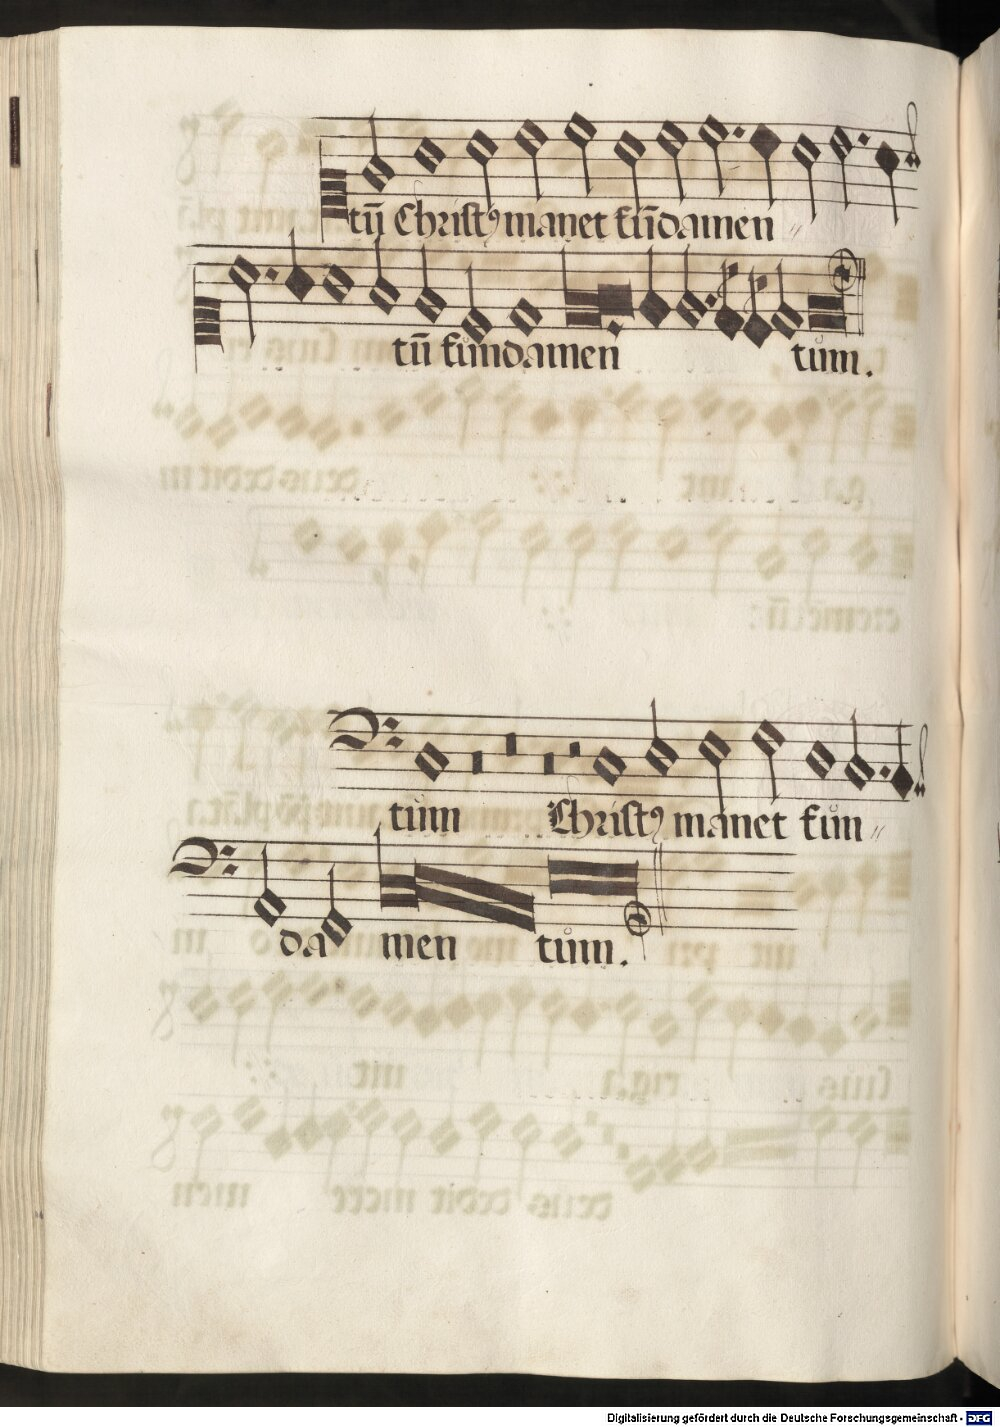 tū Christꝰ manet fūdamen
tū fundamen tum.
tum Christꝰ manet fun
da men tum.
Digitalisierung gefördert durch die Deutsche Forschungsgemeinschaft - DFG